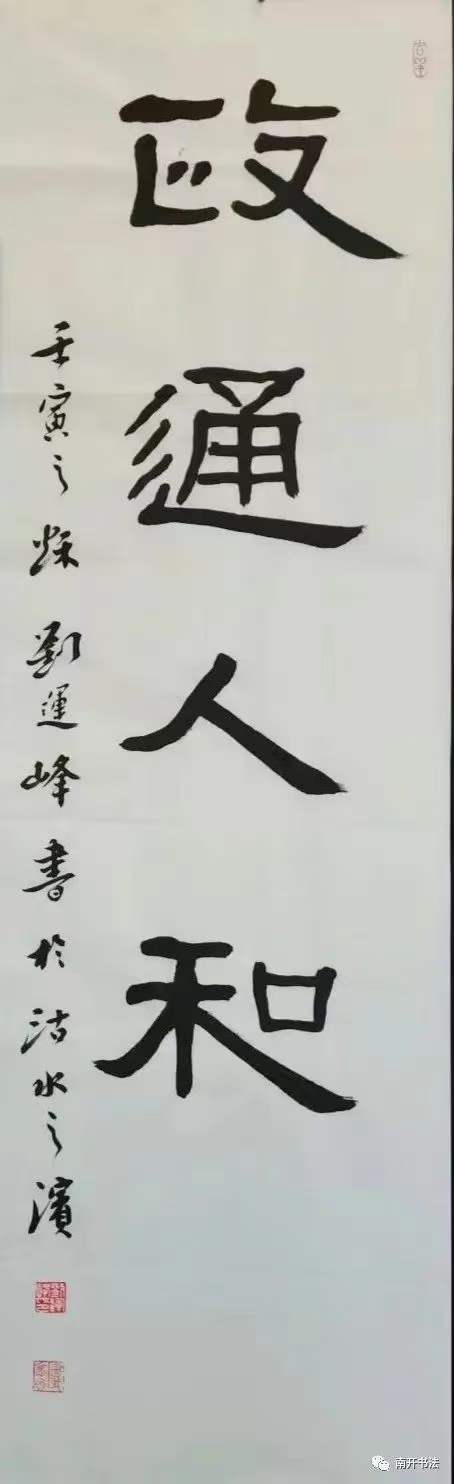 政通人和
壬寅之秌劉運峰書於沽水之濱
南开书法